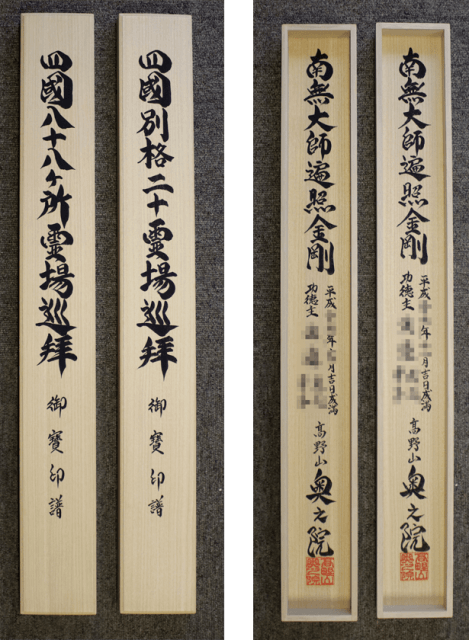 四國八十八ヶ所霊場巡拜
御寶印譜
四國別格二十霊場巡拜
御寶印譜
南無大師遍照金剛
平成 年 月吉日成満
功徳主
高野山 奥之院
南無大師遍照金剛
平成 年 月吉日成満
功徳主
高野山 奥之院